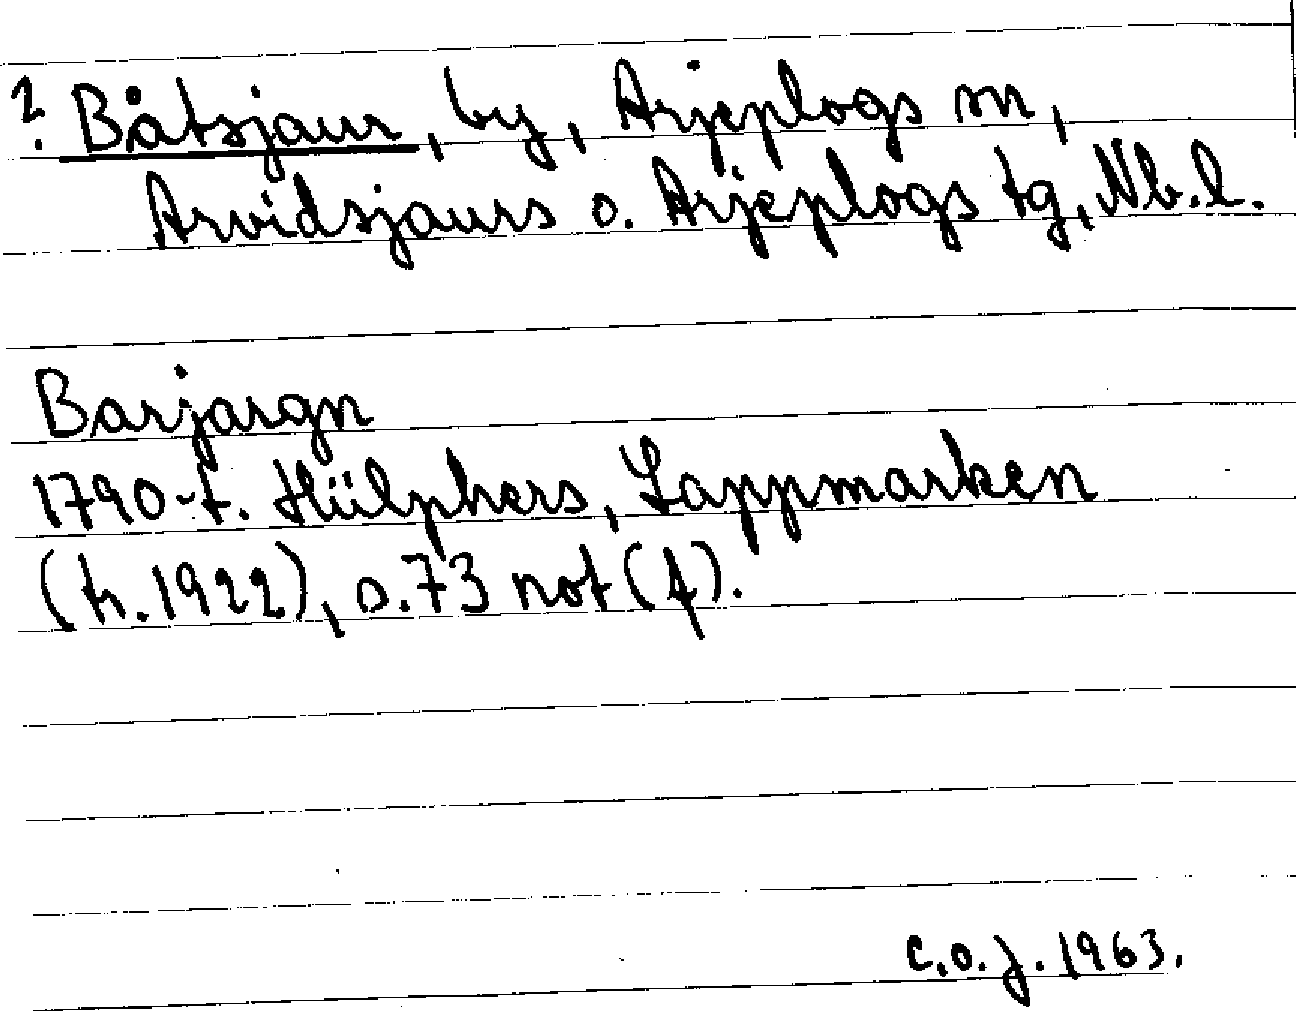 ? Båtsjaur, by, Arjeplogs sn,
Arvidsjaurs o. Arjeplogs tg, Nb.l.
Barjargn
1790-t. Hülphers, Lappmarken
(tr. 1922), s. 73 not (f).
C.O.J. 1963.